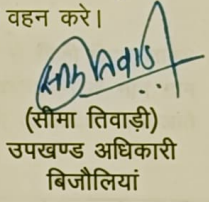 वहन करे।
सीमा तिवाड़ी
(सीमा तिवाड़ी)
उपखण्ड अधिकारी
बिजौलियां